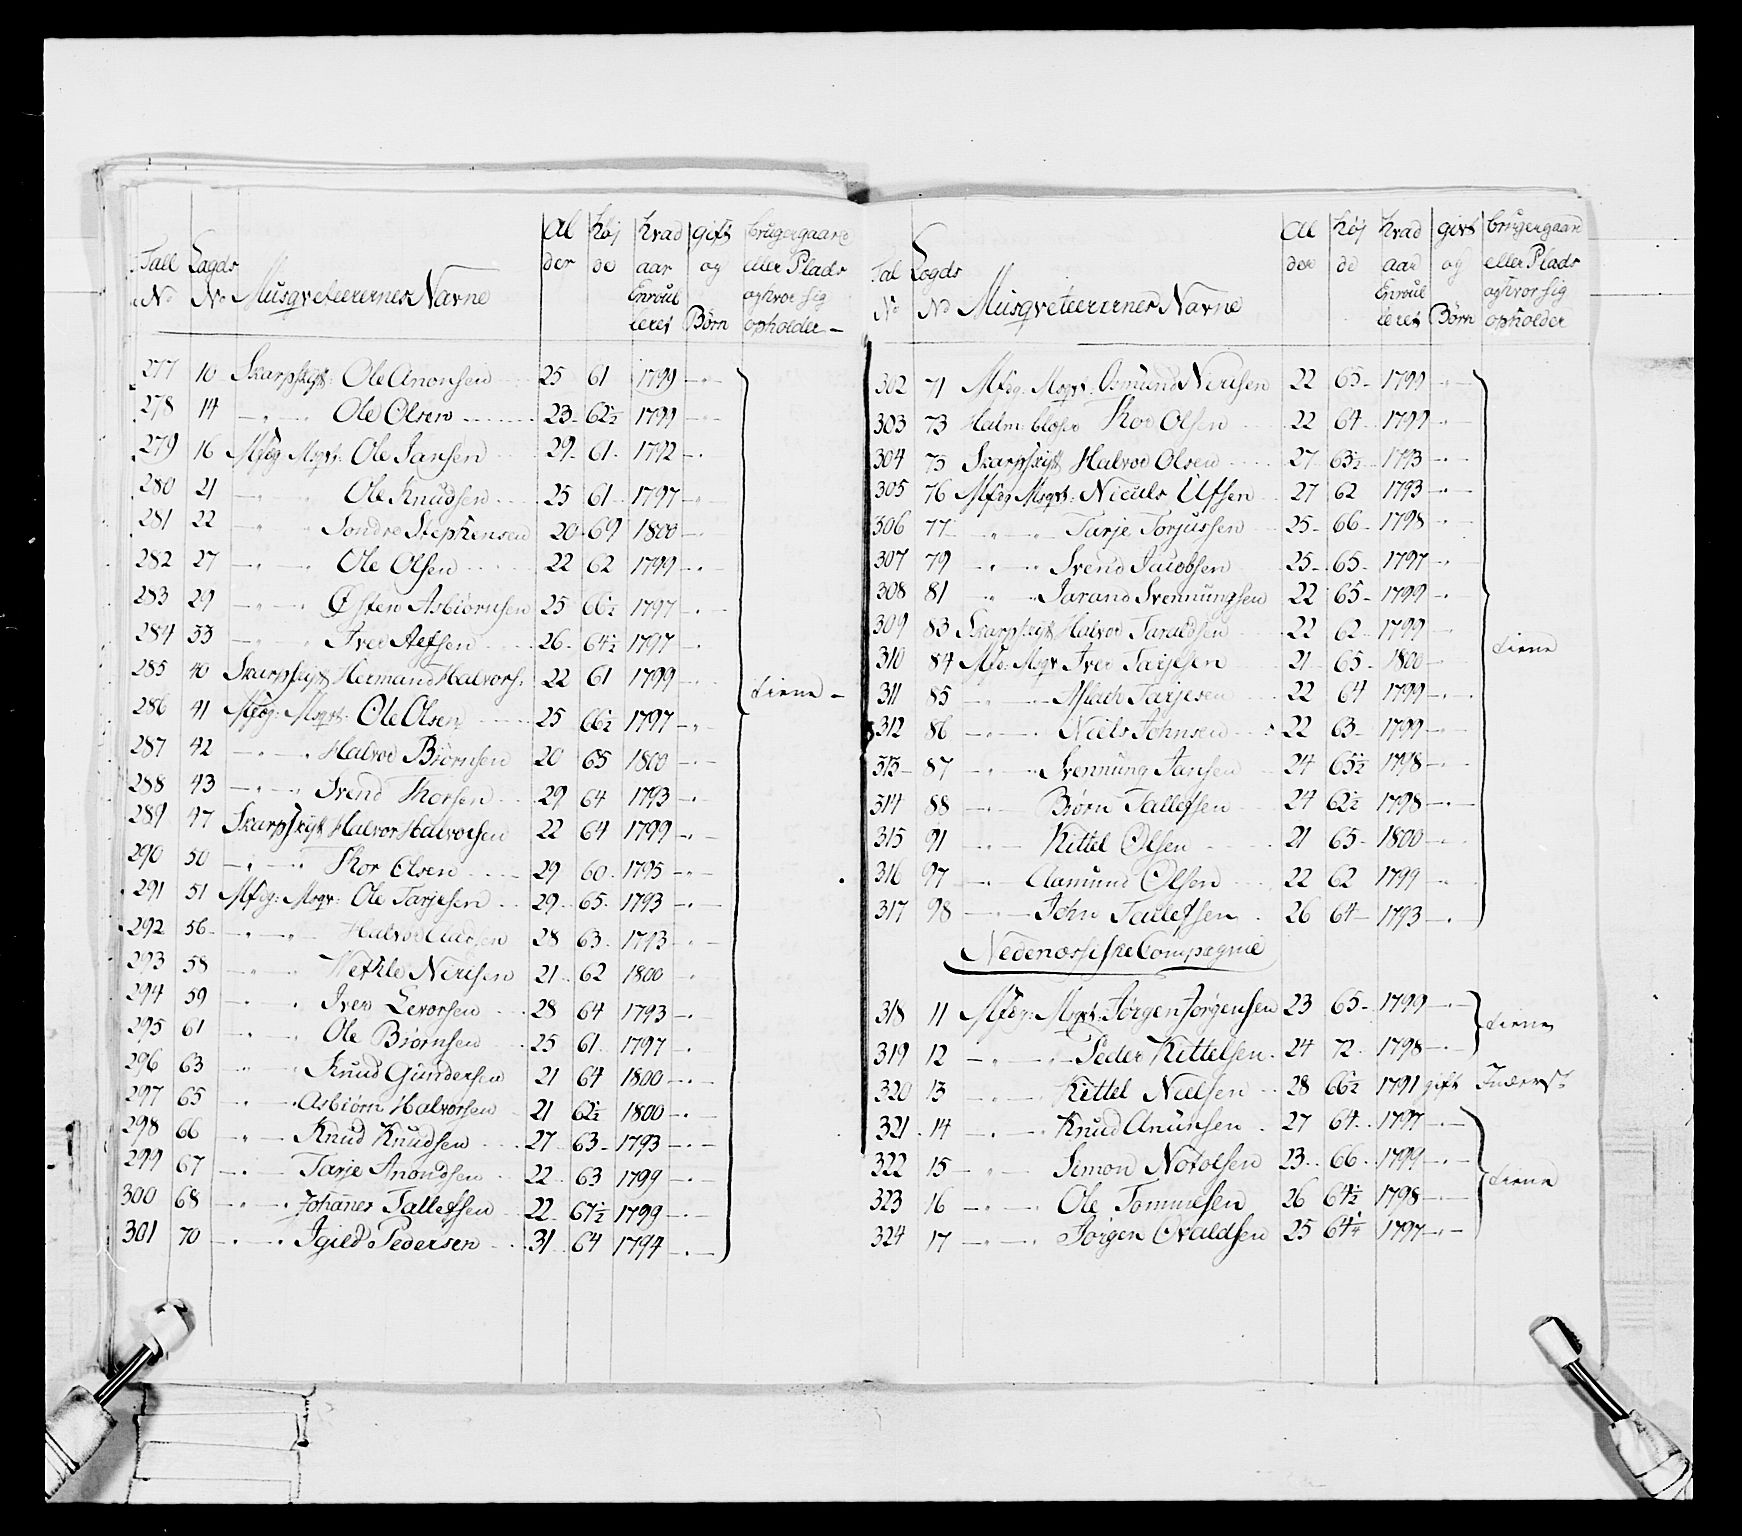 Tall No Lagds No Musqveteerernes Navne Al der høj de hvad aar Enroul leret gift og Børn bruger gaard eller Plads og hvor sig opholder
277 10 Skarpskyt: Ole Anonsen 25 61 1799
278 14 Ole Olsen 23 62½ 1799
279 16 Mfdg: Msqvt: Ole Jansen 29 61 1792
280 21 Ole Knudsen 25 61 1797
281 22 Sondre Stephensen 20 69 1800
282 27 Ole Olsen 22 62 1799
283 29 Østen Asbiørnsen 25 66½ 1797
284 33 Iver Aefsen 26 64½ 1797
285 40 Skarpskyt Hermand Halvors. 22 61 1799 tiene
286 41 Mfdg: Msqvt: Ole Olsen 25 66½ 1797
287 42 Halvor Biørnsen 20 65 1800
288 43 Svend Thorsen 29 64 1793
289 47 Skarpskyt Halvor Halvorsen 22 64 1799
290 50 Thor Olsen 29 60 1795
291 51 Mfdg: Msqv: Ole Tarjesen 29 65 1793
292 56 Halvor 28 63 1793
293 58 Wethle Nirisen 21 62 1800
294 59 Iver Levorsen 28 64 1793
295 61 Ole Biørnsen 25 61 1797
296 63 Knud Gundersen 21 64 1800
297 65 Asbiørn Halvorsen 21 62½ 1800
298 66 Knud Knudsen 27 63 1793
299 67 Tarje Anondsen 22 63 1799
300 68 Johanes Tallefsen 22 67½ 1799
301 70 Igild Pedersen 31 64 1794
Tal No Lagds No Musqveteerernes Navne Al der høj de hvad aar Enroul leret givt og Børn bruger gaard eller Plads og hvor sig opholder
302 71 Mfdg: Msqvt: Osmund Nirisen 22 65 1799
303 73 Halm: blæser Thor Olsen 22 64 1799
304 75 Skarpskyt Halvor Olsen 27 63½ 1793
305 76 Mfdg Msqvt: Niculs Ufsen 27 62 1793
306 77 Tarje Torjussen 25 66 1798
307 79 Svend Jacobsen 25 65 1797
308 81 Tarand Svennungsen 22 65 1799
309 83 Skarpskyt Halvor Taraldsen 22 62 1799
310 84 Mfd: Msqv Iver Tarjesen 21 65 1800 tiene
311 85 Tarjesen 22 64 1799
312 86 Niels Johnsen 22 63 1799
313 87 Svennung Jansen 24 65½ 1798
314 88 Biørn Tallefsen 24 62½ 1798
315 91 Kittel Olsen 21 65 1800
316 97 Aamund Olsen 22 62 1799
317 98 John Tallefsen 26 64 1793
Nedenæsiske Compagnie
318 11 Mfdg: Msqvt: Jørgen Jørgensen 23 65 1799 tiene
319 12 Peder Kittelsen 24 72 1798
320 13 Kittel Nielsen 28 66½ 1791 gift Inderst
321 14 Knud Anunsen 27 64 1797
322 15 Simon Notolsen 23 66 1799 tiene
323 16 Ole Tommesen 26 64½ 1798
324 17 Jørgen Ovaldsen 25 64¼ 1797